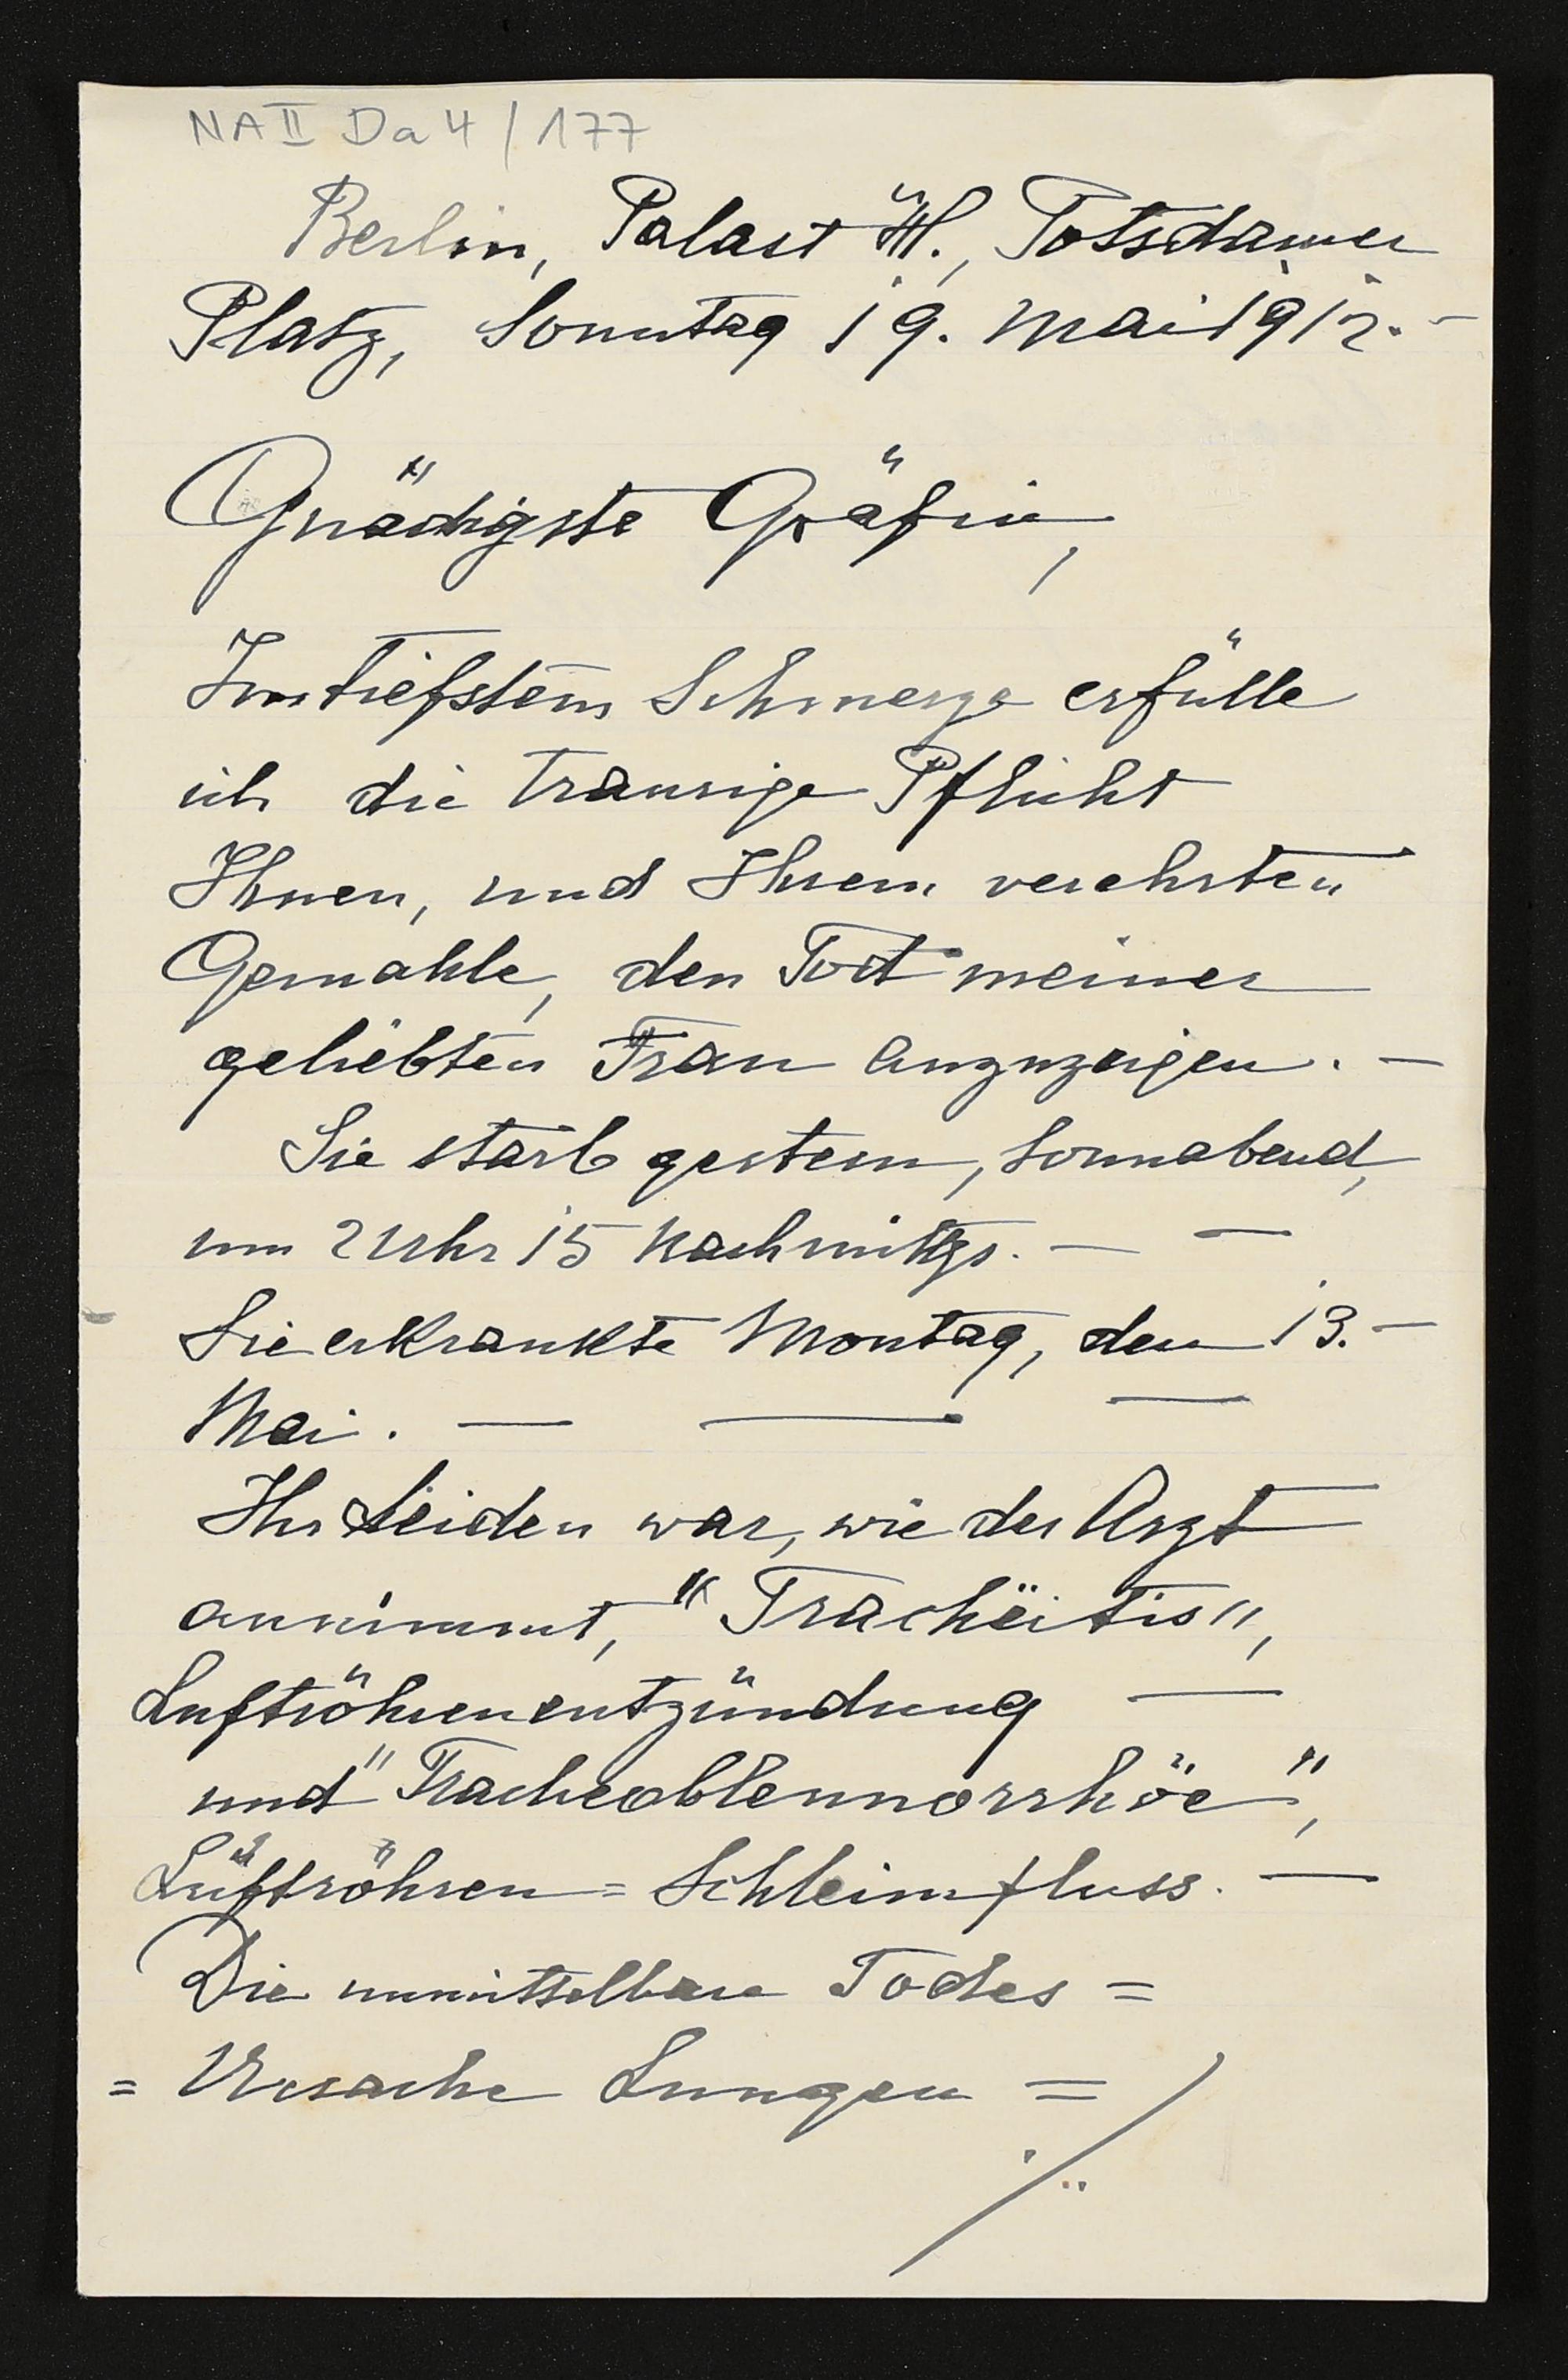 NA II Da 4 / 177
Berlin, Palast H., Potsdamer
Platz, Sonntag 19. Mai 1912. -
Gnädigste Gräfin,
Im tiefstem Schmerze erfülle
ich die traurige Pflicht
Ihnen, und Ihrem verehrten
Gemahle, den Tod meiner
geliebten Frau anzuzeigen. —
Sie starb gestern, Sonnabend,
um 2 Uhr 15 Nachmittgs. — —
Sie erkrankte Montag, den 13. —
Mai. — — —
Ihr Leiden war, wie der Arzt
annimmt, "Trachëitis",
Luftröhrenentzündung —
und "Tracheoblennorrhöe",
Luftröhren = Schleimfluss. —
Die unmittelbare Todes =
= Ursache Lungen =
./..